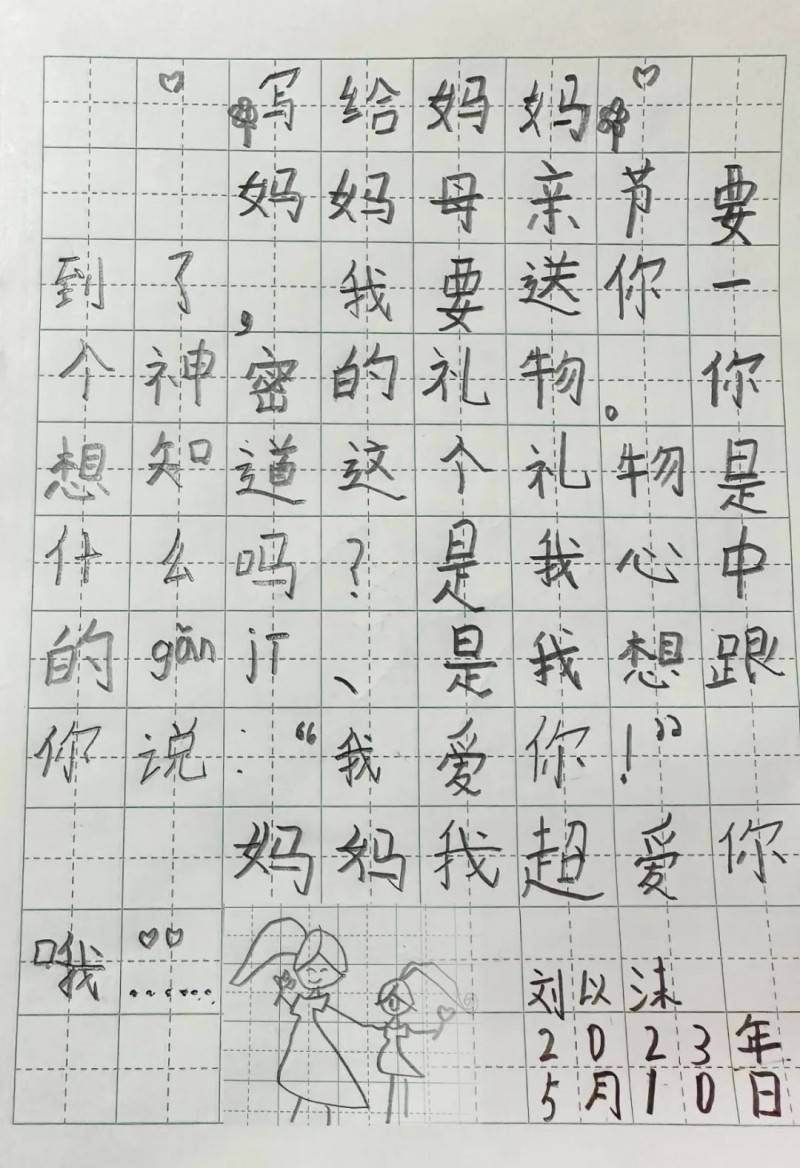 写给妈妈
妈妈母亲节要
到了，我要送你一
个神密的礼物。你
想知道这个礼物是
什么吗？是我心中
的gǎn jī、是我想跟
你说：“我爱你！”
妈妈我超爱你
哦……
刘以沫
2023年
5月10日